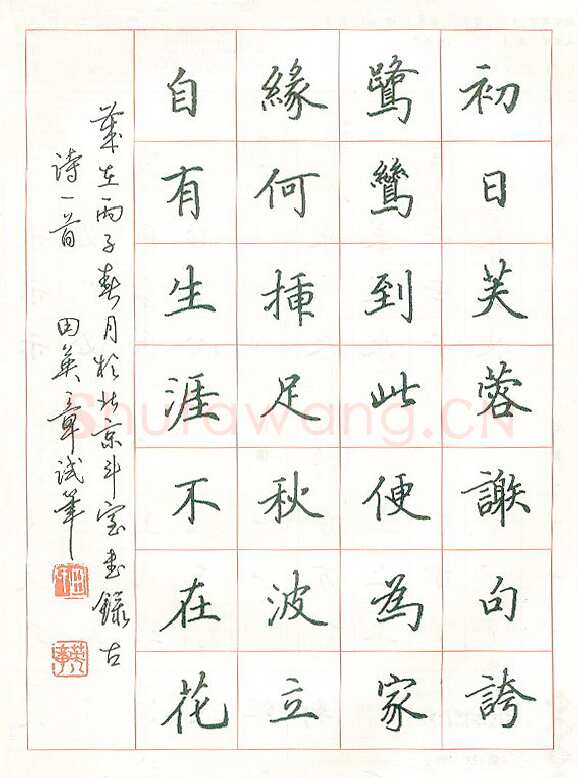 初日芙蓉謝句誇
鷺鷥到此便為家
緣何插足秋波立
自有生涯不在花
歲在丙子春月於北京斗室書錄古
诗一首 田英章试笔
田
英章
Shufawang.CN